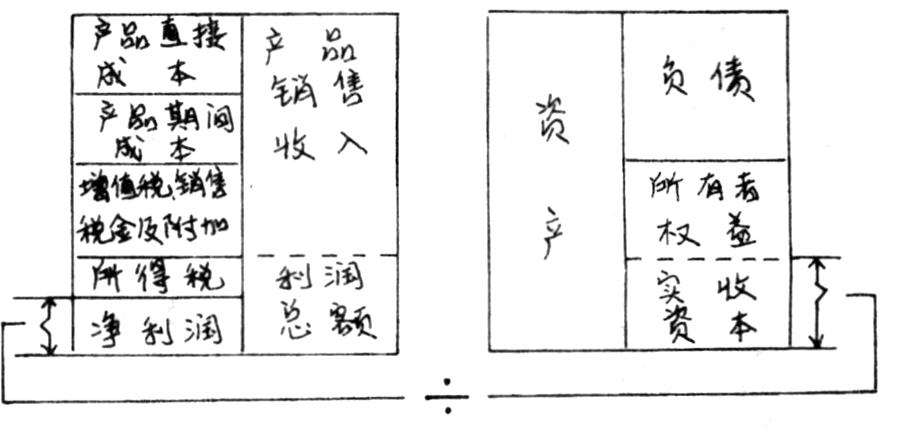 产品直接
成本
产品期间
成本
增值税销售
税金及附加
所得税
净利润
产品
销售
收入
利润
总额
资
产
负债
所有者
权益
实收
资本
÷